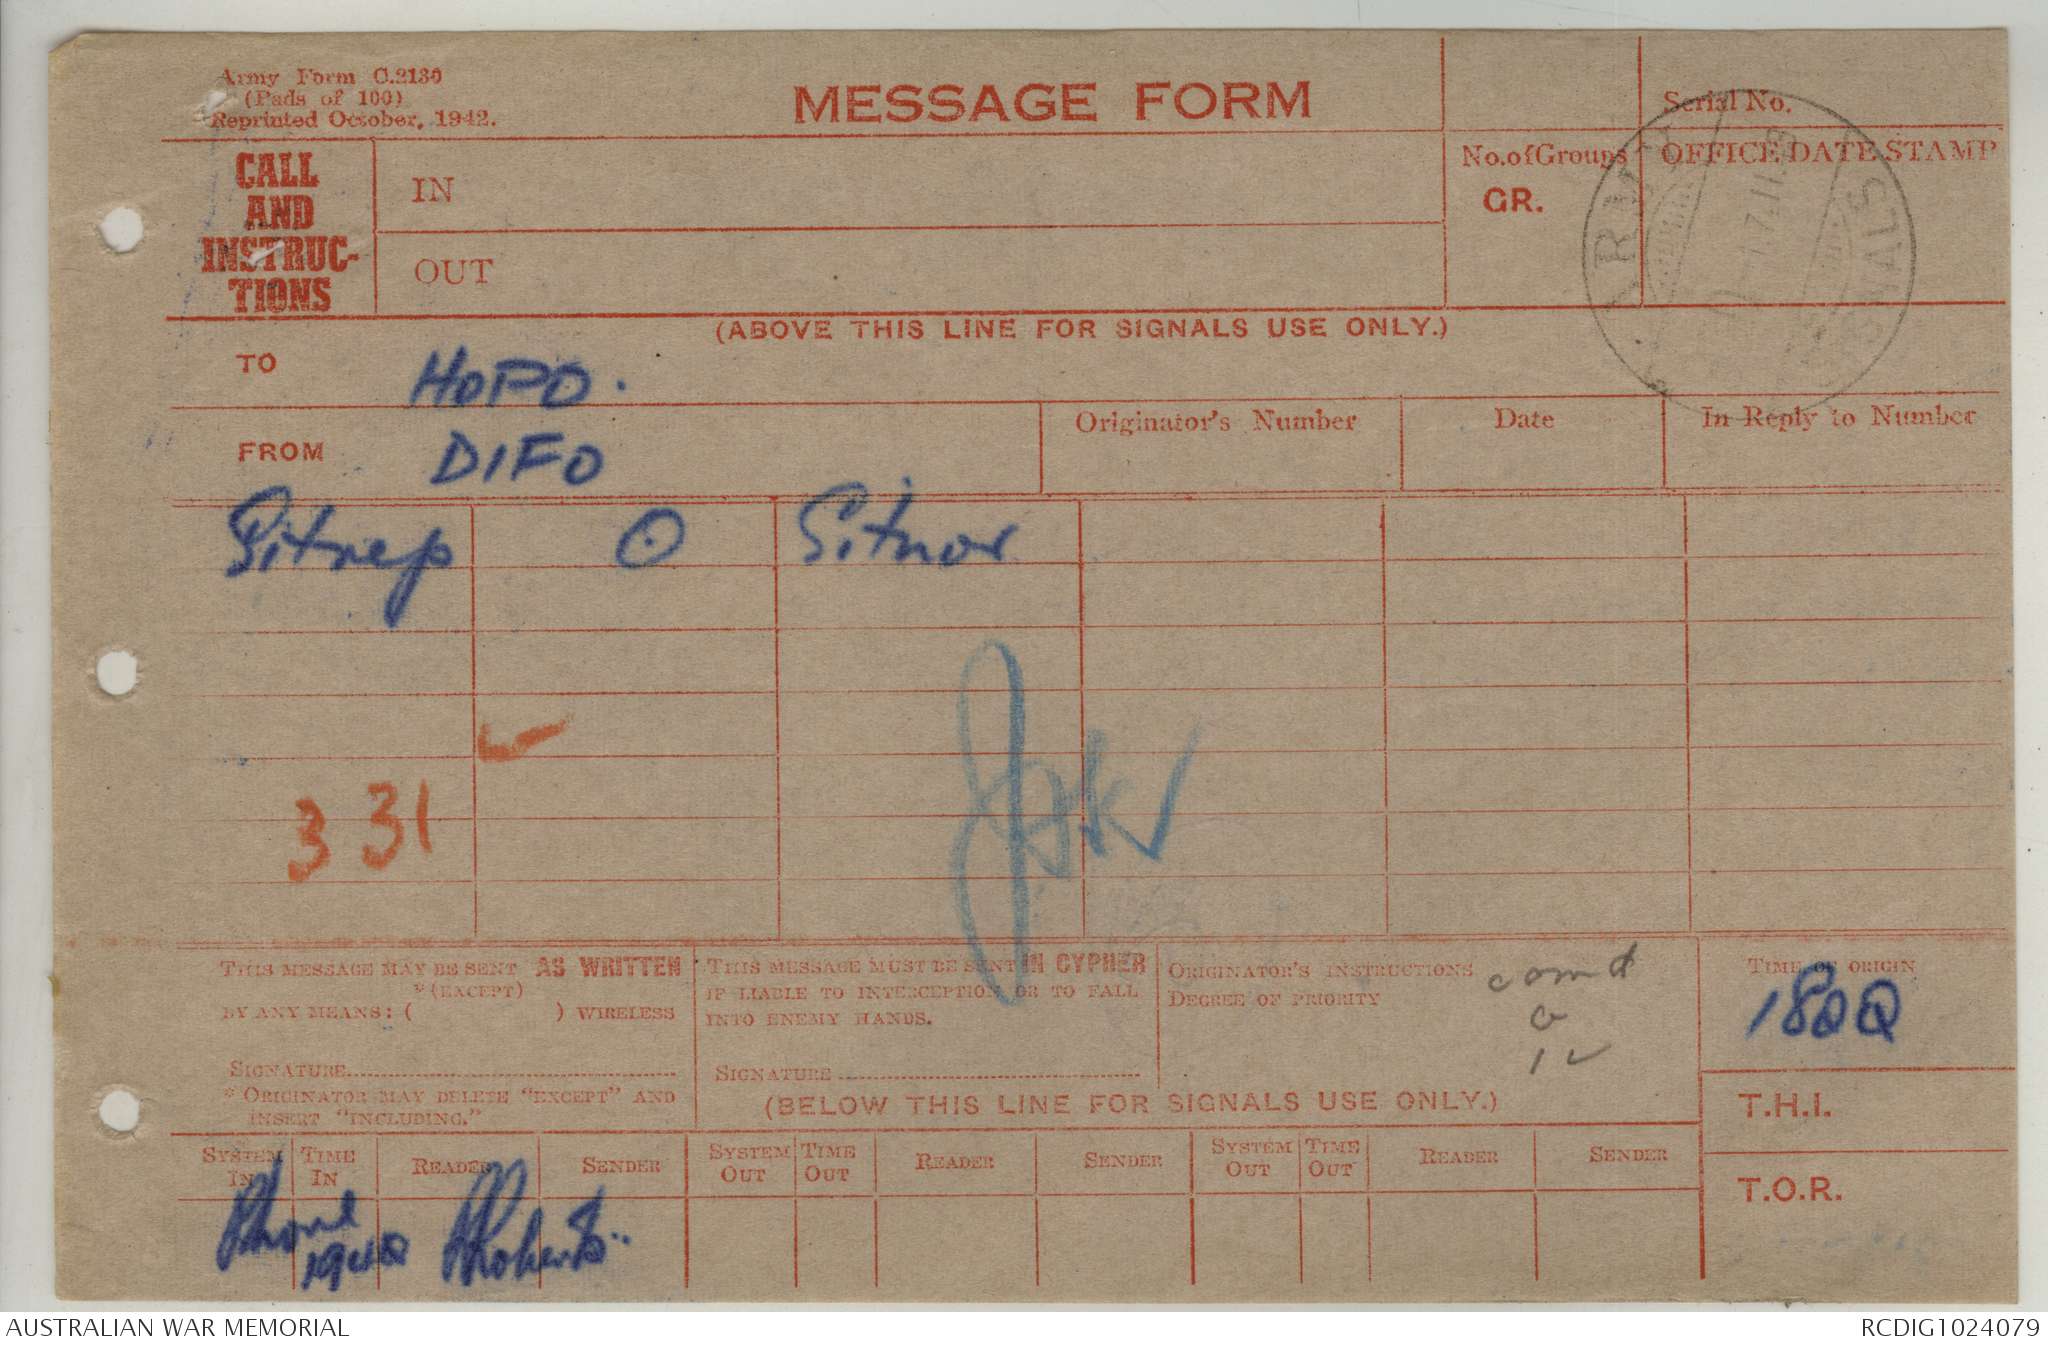 Army Form C.2130
(Pads of 100)
Reprinted October, 1942.
MESSAGE FORM
Serial No.
CALL
AND
INSTRUC-
TIONS
IN
OUT
No. of Groups
GR.
OFFICE DATE STAMP
(ABOVE THIS LINE FOR SIGNALS USE ONLY.)
TO HOPO.
FROM DIFO
Originator's Number
Date
In Reply to Number
Sitrep O Sitnor
331
THIS MESSAGE MAY BE SENT AS WRITTEN
*(EXCEPT)
BY ANY MEANS: ( ) WIRELESS
SIGNATURE
* ORIGINATOR MAY DELETE "EXCEPT" AND
INSERT "INCLUDING."
THIS MESSAGE MUST BE SENT IN CYPHER
IF LIABLE TO INTERCEPTION OR TO FALL
INTO ENEMY HANDS.
SIGNATURE
ORIGINATOR'S INSTRUCTIONS
DEGREE OF PRIORITY
comd
G
TIME OF ORIGIN
1800
(BELOW THIS LINE FOR SIGNALS USE ONLY.)
T.H.I.
T.O.R.
SYSTEM IN TIME IN READER SENDER SYSTEM OUT TIME OUT READER SENDER SYSTEM OUT TIME OUT READER SENDER
Phone 1940 Roberts
AUSTRALIAN WAR MEMORIAL
RCDIG1024079